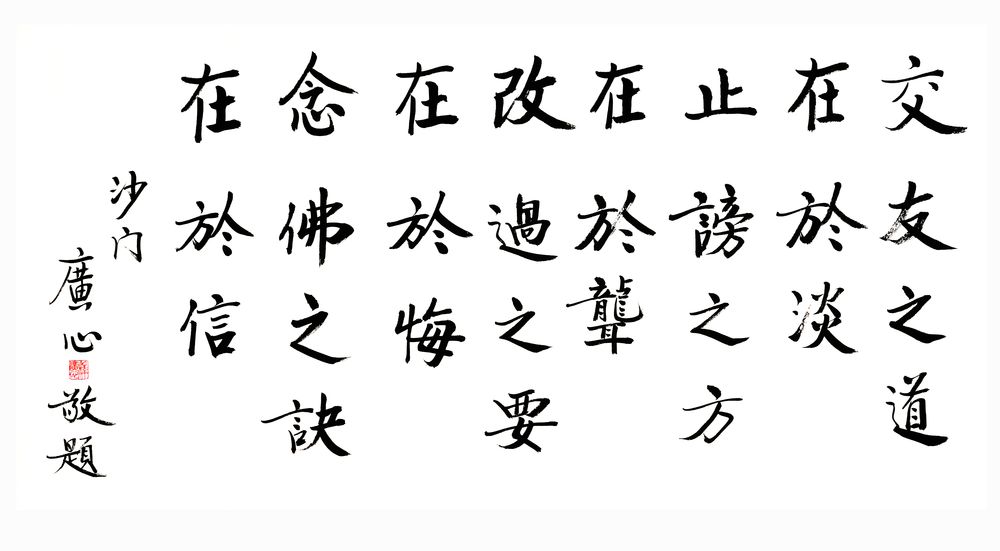 交友之道
在於淡
止謗之方
在於聾
改過之要
在於悔
念佛之訣
在於信
沙门
廣心
敬題